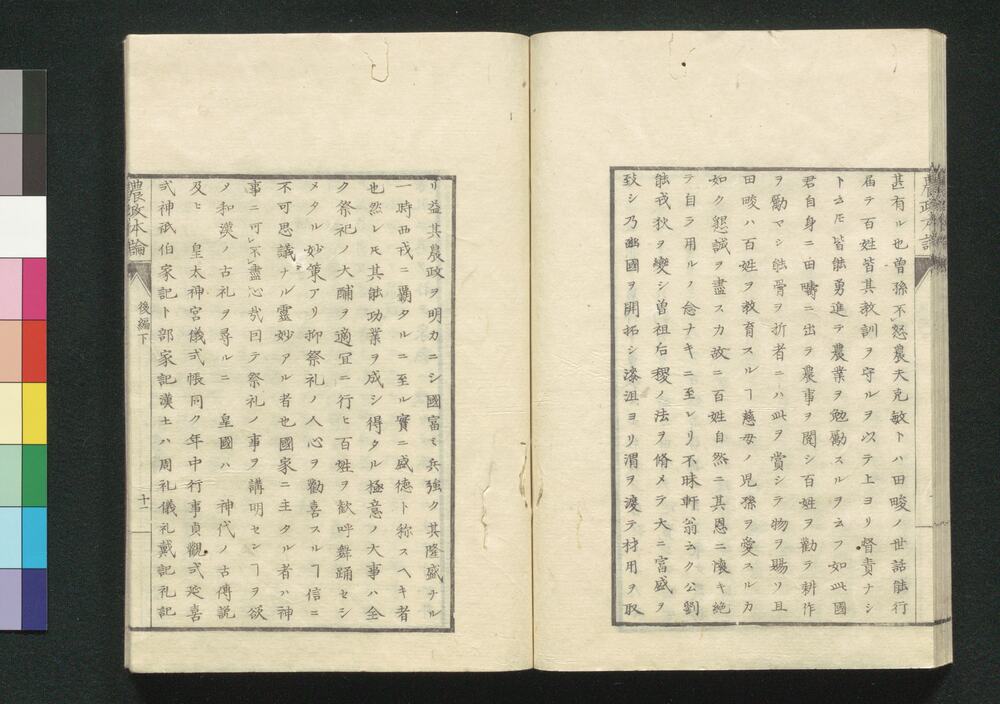 甚有ル也曽孫不怒農夫克敏トハ田畯ノ世話能行
届テ百姓皆其教訓ヲ守ルヲ以テ上ヨリ督責ナシ
ト云𪜈皆能勇進テ農業ヲ勉勵スルヲ云フ如此國
君自身ニ田疇ニ出ヲ農事ヲ閲シ百姓ヲ勸テ耕作
ヲ勵マシ能骨ヲ折者ニハ此ヲ賞シテ物ヲ賜ソ且
田畯ハ百姓ヲ教育スルヿ慈母ノ児孫ヲ愛スルカ
如ク懇誠ヲ盡スカ故ニ百姓自然ニ其恩ニ懐キ絶
テ自ラ用ルノ念ナキニ至レリ不昧軒翁云ク公劉
能戎狄ヲ變シ曽祖后稷ノ法ヲ脩メテ大ニ富盛ヲ
致シ乃豳國ヲ開拓シ漆沮ヨリ渭ヲ渡テ材用ヲ取
リ益其農政ヲ明カニシ國富ミ兵強ク其隆盛ナル
一時西戎ニ覇タルニ至ル實ニ盛徳ト称スヘキ者
也然レ𪜈其能功業ヲ成シ得タル極意ノ大事ハ全
ク祭祀ノ大酺ヲ適冝ニ行ヒ百姓ヲ歓呼舞踊セシ
メタル妙策アリ抑祭礼ノ人心ヲ勸喜スルヿ信ニ
不可思議ナル霊妙アル者也國家ニ主タル者ハ神
事ニ可不盡心哉因テ祭礼ノ事ヲ講明センヿヲ欲
ノ和漢ノ古礼ヲ尋ルニ　皇國ハ　神代ノ古傳説
及ヒ　皇太神宮儀式帳同ク年中行事貞觀式延喜
式神祇伯家記卜部家記漢土ハ周礼儀礼戴記礼記
農政本論
後編下
十一